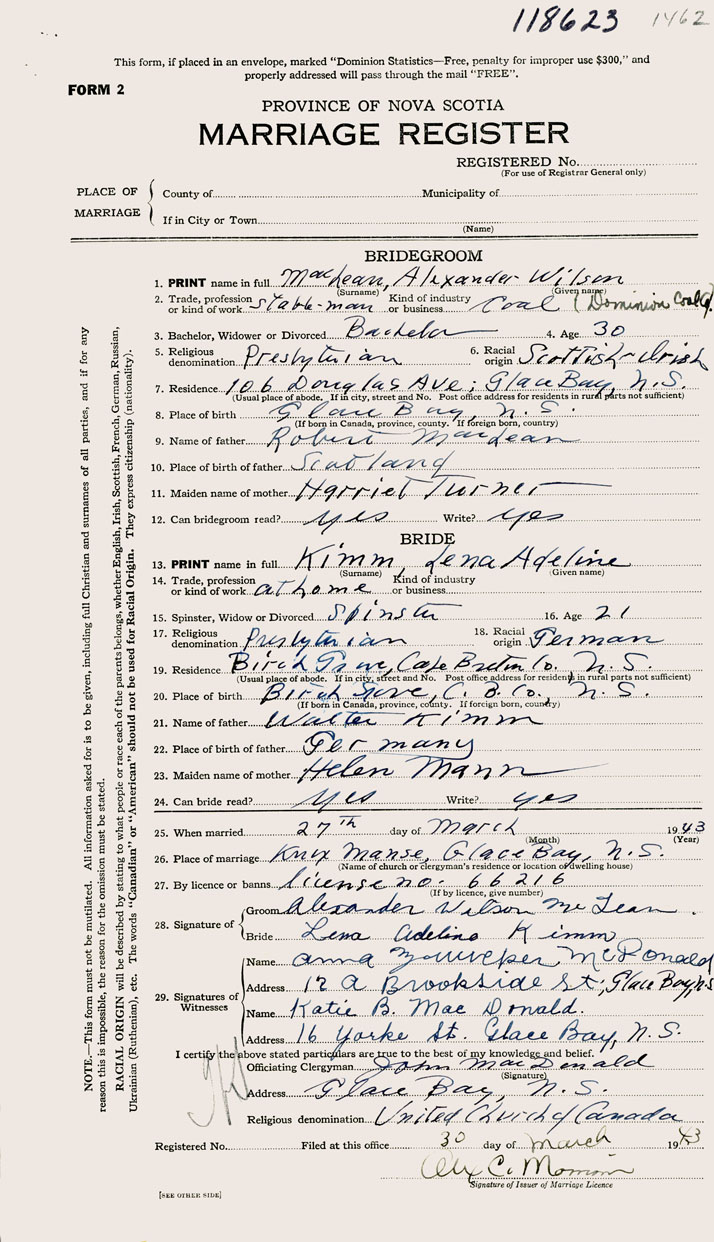 118623 1462
This form, if placed in an envelope, marked "Dominion Statistics—Free, penalty for improper use $300," and
properly addressed will pass through the mail "FREE".
FORM 2
PROVINCE OF NOVA SCOTIA
MARRIAGE REGISTER
REGISTERED No.
(For use of Registrar General only)
PLACE OF MARRIAGE
County of Municipality of
If in City or Town
(Name)
BRIDEGROOM
1. PRINT name in full MacLean, Alexander Wilson
(Surname) (Given name)
2. Trade, profession or kind of work stable-man Kind of industry or business Coal (Dominion Coal Co.
3. Bachelor, Widower or Divorced Bachelor 4. Age 30
5. Religious denomination Presbyterian 6. Racial origin Scottish-Irish
7. Residence 106 Douglas Ave; Glace Bay, N.S.
(Usual place of abode. If in city, street and No. Post office address for residents in rural parts not sufficient)
8. Place of birth Glace Bay, N.S.
(If born in Canada, province, county. If foreign born, country)
9. Name of father Robert MacLean
10. Place of birth of father Scotland
11. Maiden name of mother Harriet Turner
12. Can bridegroom read? yes Write? yes
BRIDE
13. PRINT name in full Kimm, Lena Adeline
(Surname) (Given name)
14. Trade, profession or kind of work at home Kind of industry or business
15. Spinster, Widow or Divorced Spinster 16. Age 21
17. Religious denomination Presbyterian 18. Racial origin German
19. Residence Birch Grove, Cape Breton Co. N.S.
(Usual place of abode. If in city, street and No. Post office address for residents in rural parts not sufficient)
20. Place of birth Birch Grove, C.B. Co., N.S.
(If born in Canada, province, county. If foreign born, country)
21. Name of father Walter Kimm
22. Place of birth of father Germany
23. Maiden name of mother Helen Mann
24. Can bride read? yes Write? yes
25. When married 27th day of March 1943
(Month) (Year)
26. Place of marriage Knox Manse, Glace Bay, N.S.
(Name of church or clergyman's residence or location of dwelling house)
27. By licence or banns license no. 66216
(If by licence, give number)
28. Signature of Groom Alexander Wilson McLean.
Bride Lena Adeline Kimm
29. Signatures of Witnesses
Name Anna McDonald
Address 12 A Brookside St., Glace Bay, N.S
Name Katie B. MacDonald.
Address 16 Yorke St. Glace Bay, N.S.
I certify the above stated particulars are true to the best of my knowledge and belief.
Officiating Clergyman John MacDonald
(Signature)
Address Glace Bay, N.S.
Religious denomination United Church of Canada
Registered No. Filed at this office 30 day of March 1943
Alex C.
Signature of Issuer of Marriage Licence
[SEE OTHER SIDE]
NOTE.—This form must not be mutilated. All information asked for is to be given, including full Christian and surnames of all parties, and if for any
reason this is impossible, the reason for the omission must be stated.
RACIAL ORIGIN will be described by stating to what people or race each of the parents belongs, whether English, Irish, Scottish, French, German, Russian,
Ukrainian (Ruthenian), etc. The words "Canadian" or "American" should not be used for Racial Origin. They express citizenship (nationality).